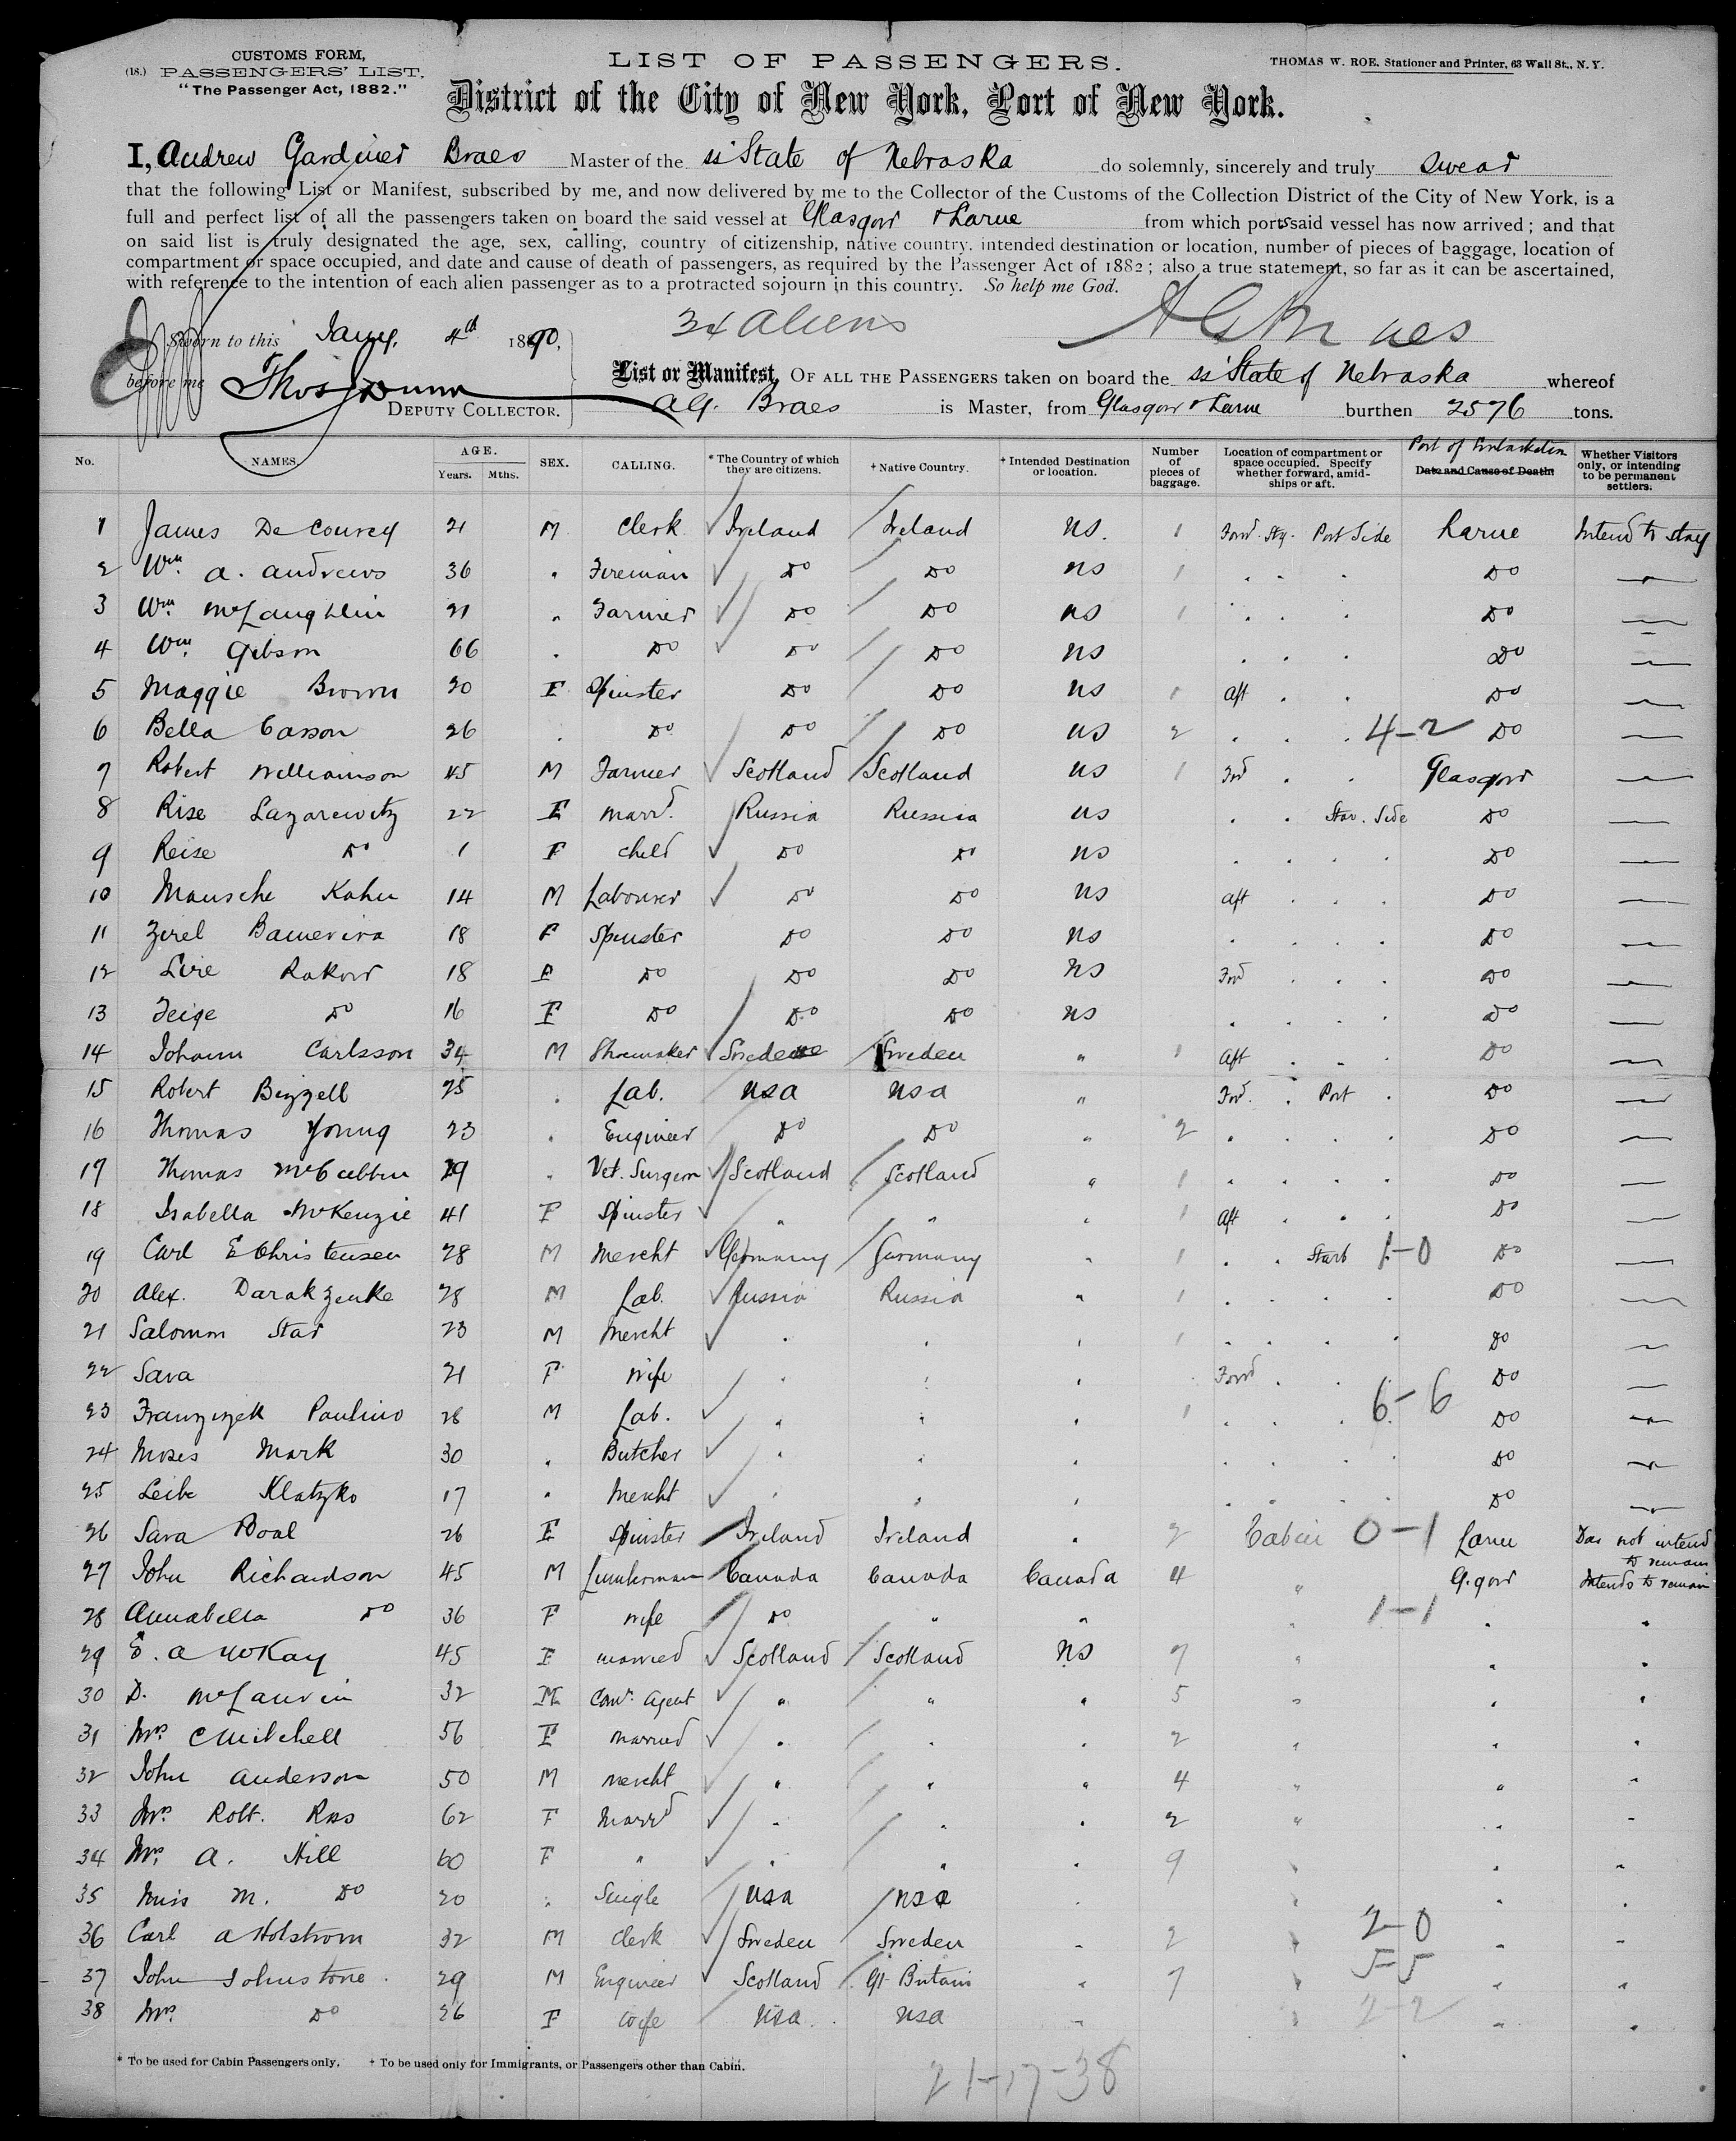 CUSTOMS FORM,
(18.) PASSENGERS' LIST.
"The Passenger Act, 1882."
LIST OF PASSENGERS.
THOMAS W. ROE, Stationer and Printer, 63 Wall St., N. Y.
District of the City of New York, Port of New York.
I, Andrew Gardiner Braes Master of the ss State of Nebraska do solemnly, sincerely and truly swear
that the following List or Manifest, subscribed by me, and now delivered by me to the Collector of the Customs of the Collection District of the City of New York, is a
full and perfect list of all the passengers taken on board the said vessel at Glasgow & Larne from which ports said vessel has now arrived; and that
on said list is truly designated the age, sex, calling, country of citizenship, native country, intended destination or location, number of pieces of baggage, location of
compartment or space occupied, and date and cause of death of passengers, as required by the Passenger Act of 1882; also a true statement, so far as it can be ascertained,
with reference to the intention of each alien passenger as to a protracted sojourn in this country. So help me God.
34 Aliens
A G Braes
Sworn to this Jany. 4th 1890,
before me Thos J Dunn
DEPUTY COLLECTOR.
List or Manifest, OF ALL THE PASSENGERS taken on board the ss State of Nebraska whereof
A G. Braes is Master, from Glasgow & Larne burthen 2576 tons.
No. NAMES. AGE. Years. Mths. SEX. CALLING. * The Country of which they are citizens. † Native Country. † Intended Destination or location. Number of pieces of baggage. Location of compartment or space occupied. Specify whether forward, amidships or aft. Port of Embarkation Date and Cause of Death. Whether Visitors only, or intending to be permanent settlers.
1 James De Courcy 21 M Clerk Ireland Ireland US. 1 Ford. Stg. Port Side Larne Intend to stay
2 Wm. A. Andrews 36 " Fireman Do Do US 1 " " " Do "
3 Wm. McLaughlin 21 " Farmer Do Do US 1 " " " Do "
4 Wm. Gibson 66 " Do Do Do US " " " Do "
5 Maggie Brown 20 F Spinster Do Do US 1 Aft " " Do "
6 Bella Casson 26 " Do Do Do US 2 " " " 4-2 Do "
7 Robert Williamson 45 M Farmer Scotland Scotland US 1 Ford " " Glasgow "
8 Rise Lazarewitz 22 F Marrd. Russia Russia US " " Star. Side Do "
9 Reise Do 1 F Child Do Do US " " " " Do "
10 Mausche Kahn 14 M Labourer Do Do US Aft " " " Do "
11 Zirel 18 F Spinster Do Do US " " " " Do "
12 Lire Rakow 18 F Do Do Do US Ford " " " Do "
13 Feige Do 16 F Do Do Do US " " " " Do "
14 Johann Carlsson 34 M Shoemaker Sweden Sweden " 1 Aft " " " Do "
15 Robert Bizzell 25 " Lab. USA USA " Ford. " Port " Do "
16 Thomas Young 23 " Engineer Do Do " 2 " " " " Do "
17 Thomas McCubbin 29 " Vet. Surgeon Scotland Scotland " 1 " " " " Do "
18 Isabella McKenzie 41 F Spinster " " " 1 Aft " " " Do "
19 Carl E Christensen 28 M Mercht Germany Germany " 1 " " Starb 1-0 Do "
20 Alex. Darakzenke 28 M Lab. Russia Russia " 1 " " " " Do "
21 Salomon Star 23 M Mercht " " " 1 " " " " Do "
22 Sara 21 F Wife " " " Ford " " " Do "
23 Franzizek Paulino 28 M Lab. " " " 1 " " " 6-6 Do "
24 Moses Mark 30 " Butcher " " " " " " " Do "
25 Leib Klatzko 17 " Mercht " " " " " " " Do "
26 Sara Boal 26 F Spinster Ireland Ireland " 2 Cabin 0-1 Larne Does not intend to remain
27 John Richardson 45 M Lumberman Canada Canada Canada 4 " G.gow Intends to remain
28 Annabella Do 36 F Wife Do " " " 1-1 " "
29 E. A McKay 45 F Married Scotland Scotland US 7 " " "
30 D. McLauvin 32 M Comr. Agent " " " 5 " " "
31 Mrs. C Mitchell 56 F Married " " " 2 " " "
32 John Anderson 50 M Mercht " " " 4 " " "
33 Mrs. Robt. Ross 62 F Marrd " " " 2 " " "
34 Mrs. A. Hill 60 F " " " " 9 " " "
35 Miss M. Do 20 " Single USA USA " " " "
36 Carl A Holstrom 32 M Clerk Sweden Sweden " 2 " 2-0 " "
37 John Johnstone 29 M Engineer Scotland Gt Britain " 7 " 5-5 " "
38 Mrs. Do 26 F Wife USA USA " " 2-2 " "
* To be used for Cabin Passengers only. † To be used only for Immigrants, or Passengers other than Cabin.
21-17-38